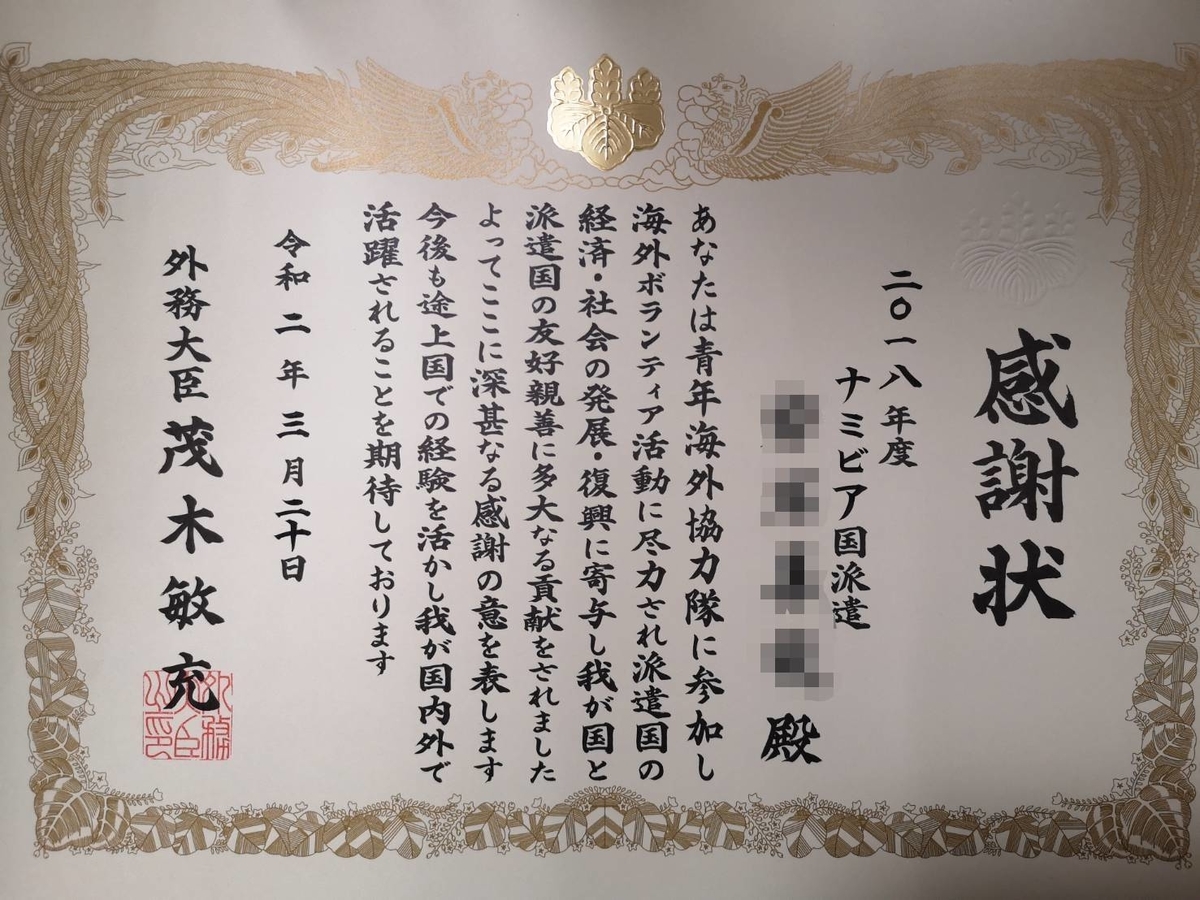 感謝状
二〇一八年度
ナミビア国派遣
殿
あなたは青年海外協力隊に参加し
海外ボランティア活動に尽力され派遣国の
経済・社会の発展・復興に寄与し我が国と
派遣国の友好親善に多大なる貢献をされました
よってここに深甚なる感謝の意を表します
今後も途上国での経験を活かし我が国内外で
活躍されることを期待しております
令和二年三月二十日
外務大臣 茂木敏充
外務大臣公印